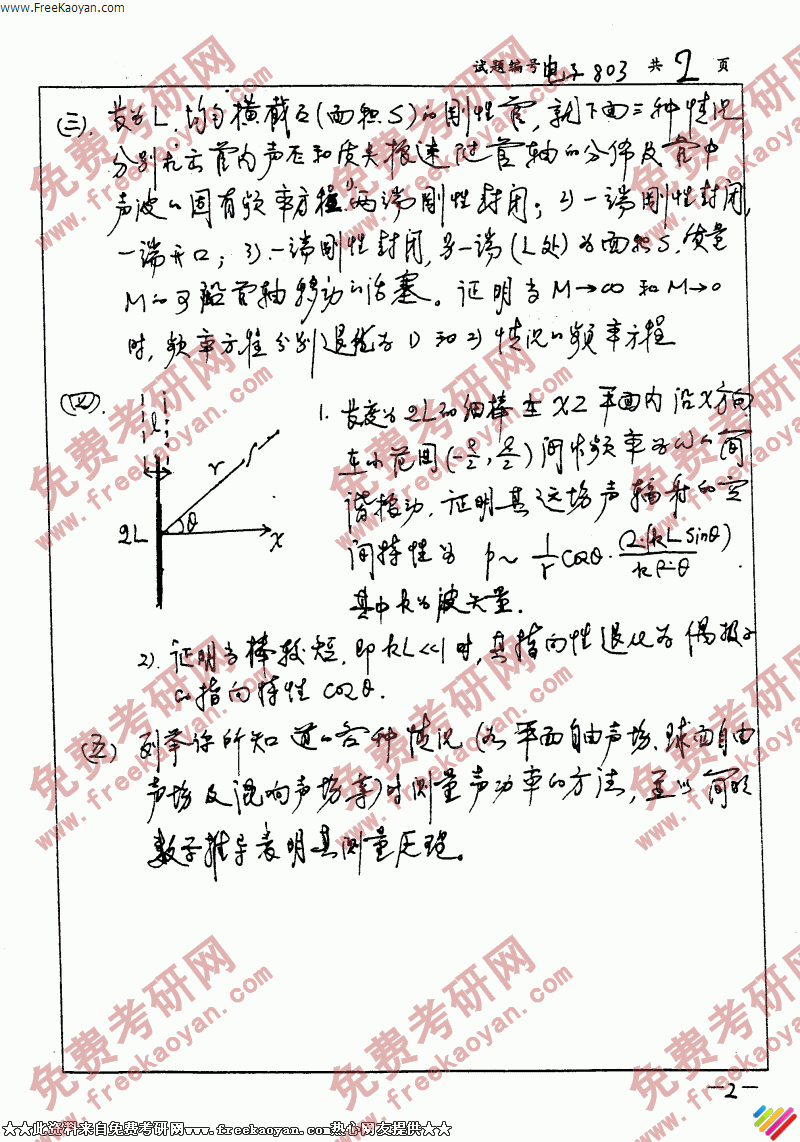 www.FreeKaoyan.com
试题编号 电子803 共 2 页
(三). 长为L, 均匀横截面(面积S)的刚性管, 就下面三种情况
分别求出管内声压和质点振速随管轴的分佈及管中
声波的固有频率方程 1) 两端刚性封闭; 2) 一端刚性封闭,
一端开口; 3) 一端刚性封闭, 另一端(L处)为面积S, 质量
M的可沿管轴移动的活塞。证明当M→∞和M→0
时, 频率方程分别退化为1)和2)情况的频率方程
(四).
l
r
θ
2L
x
1. 长度为2L的细棒在XZ平面内沿X方向
在小范围(-ℓ/2, ℓ/2)间作频率为ω的间
谐振动, 证明其远场声辐射的空
间特性为 p~ 1/r cosθ · (kL sinθ)/
其中k为波矢量.
2). 证明当棒较短, 即kL<<1时, 其指向性退化为偶极子
的指向特性cosθ.
(五) 列举你所知道的各种情况(如平面自由声场、球面自由
声场及混响声场等)时测量声功率的方法, 并以简明
数学推导表明其测量原理。
-2-
免费考研网
www.freekaoyan.com
★★此资料来自免费考研网www.freekaoyan.com热心网友提供★★